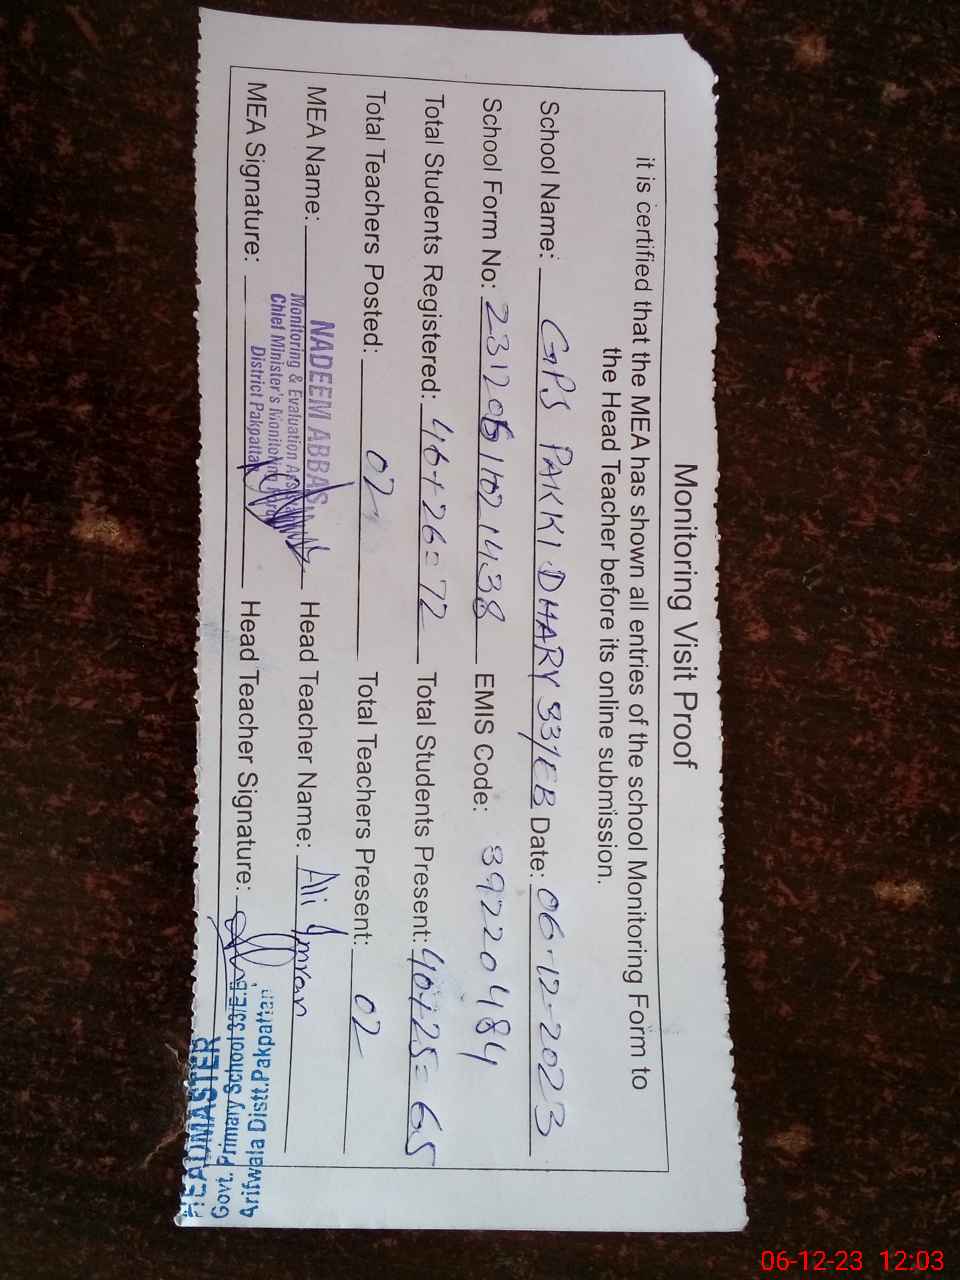 Monitoring Visit Proof
it is certified that the MEA has shown all entries of the school Monitoring Form to
the Head Teacher before its online submission.
School Name: GPS PAKKI DHARY 33/EB Date: 06-12-2023
School Form No: EMIS Code: 39220484
Total Students Registered: 46+26=72 Total Students Present: 40+25=65
Total Teachers Posted: 02 Total Teachers Present: 02
MEA Name: NADEEM ABBAS Head Teacher Name: Ali Imran
Monitoring & Evaluation
Chief Minister's Monitoring
District Pakpattan
MEA Signature: Head Teacher Signature:
HEADMASTER
Govt. Primary School
Arifwala Distt Pakpattan
06-12-23 12:03